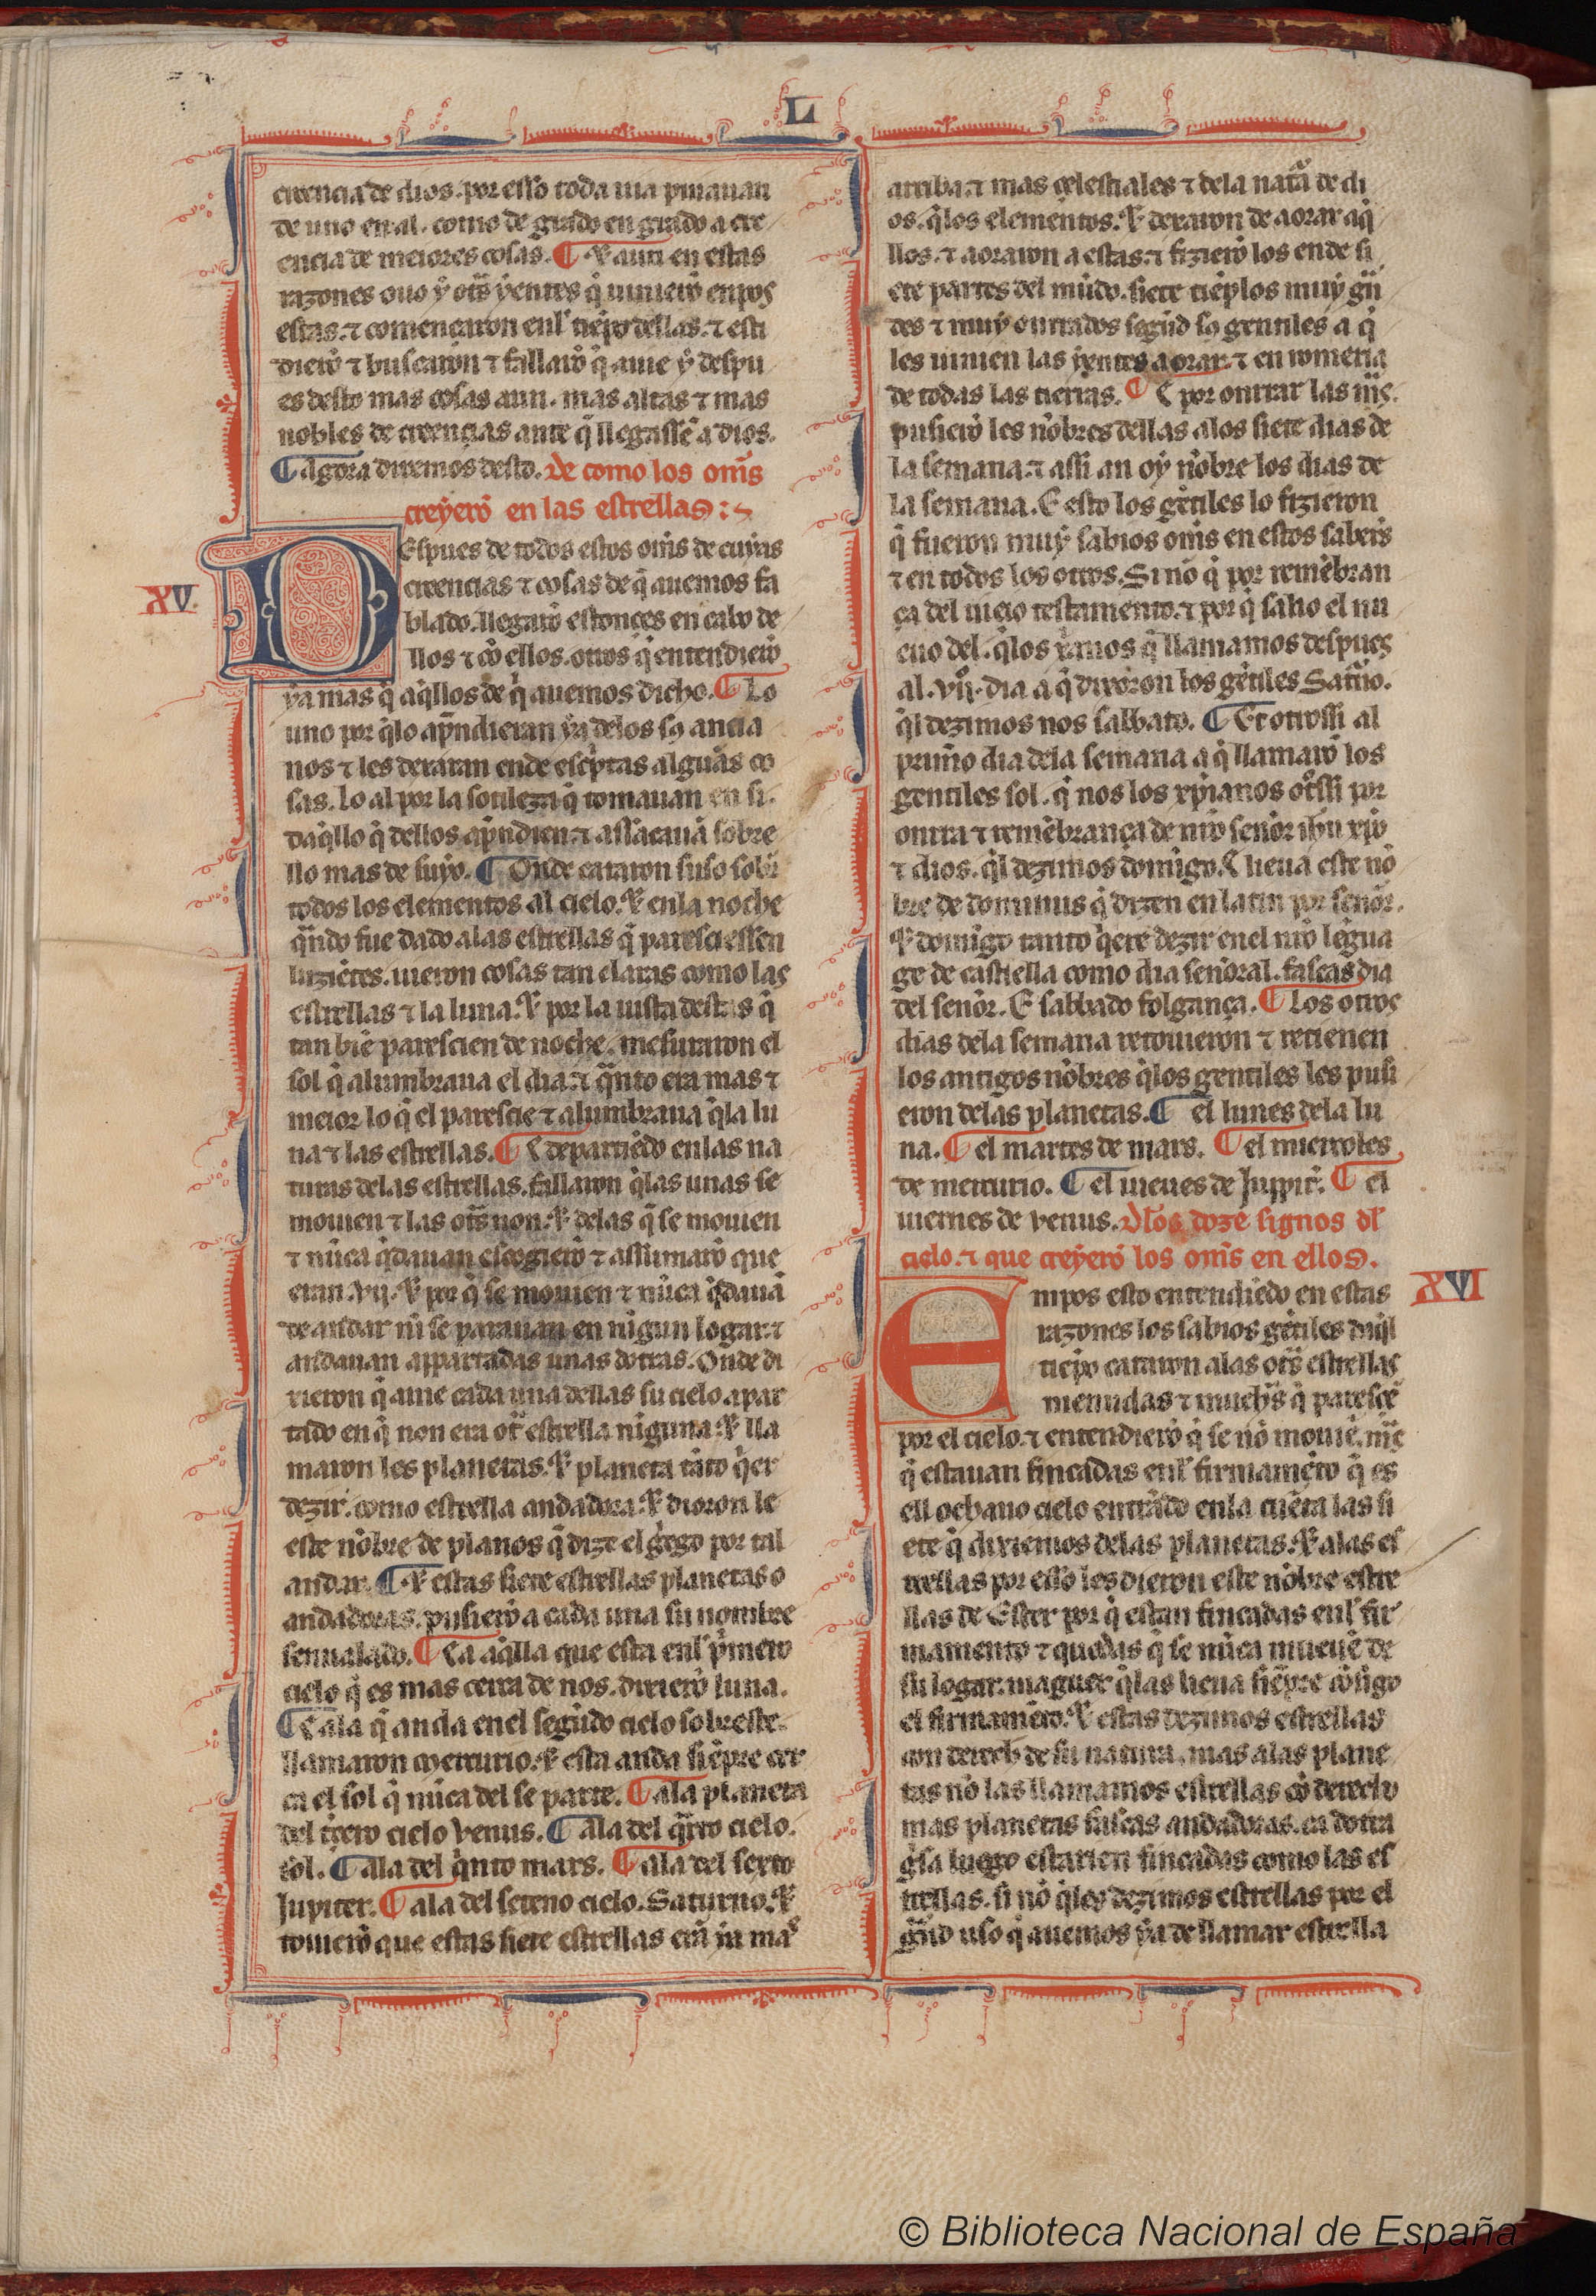 L
creencia de dios. por esso toda uia puiauan
de uno en al. como de grado en grado a cre
encia de meiores cosas. ¶ ⁊ aun en estas
razones ouo y ots̃ yentes q̃ uinierõ enpos
estas. ⁊ començaron enl tiẽpo dellas. ⁊ estu
dierõ ⁊ buscaron ⁊ fallarõ q̃ auie y despu
es desto mas cosas aun. mas altas ⁊ mas
nobles de creencias ante q̃ llegassẽ a dios.
¶ agora diremos desto. De como los om̃s
creyerõ en las estrellas:~
XV.
DEspues de todos estos om̃s de cuyas
creencias ⁊ cosas de q̃ auemos fa
blado. llegarõ estonçes en cabo de
llos ⁊ cõ ellos. otros q̃ entendierõ
ya mas q̃ aq̃llos de q̃ auemos dicho. ¶ Lo
uno por q̃lo ap̃ndieran ya delos sos ancia
nos ⁊ les dexaran ende esc̃ptas algunãs co
sas. lo al por la sotileza q̃ tomauan en si.
daq̃llo q̃ dellos ap̃ndien. ⁊ assacauã sobre
llo mas de suyo. ¶ Onde cataron suso sobr̃
todos los elementos al cielo. ⁊ enla noche
q̃ndo fue dado alas estrellas q̃ paresciessen
luziẽtes. uieron cosas tan claras como las
estrellas ⁊ la luna. ⁊ por la uista destas q̃
tan biẽ parescien de noche. mesuraron el
sol q̃ alumbraua el dia. ⁊ q̃nto era mas ⁊
meior lo q̃ el parescie ⁊ alumbraua q̃la lu
na ⁊ las estrellas. ¶ E departiẽdo enlas na
turas delas estrellas. fallaron q̃las unas se
mouien ⁊ las ots̃ non. ⁊ delas q̃ se mouien
⁊ nũca q̃dauan escogierõ ⁊ assumarõ que
eran .vij. ⁊ por q̃ se mouien ⁊ nũca q̃dauã
de andar nĩ se parauan en nĩgun logar. ⁊
andauan appartadas unas dotras. Onde di
xieron q̃ auie cada una dellas su cielo apar
tado en q̃ non era otr̃ estrella nĩguna. ⁊ lla
maron les planetas. ⁊ planeta tãto q̃er
dezir. como estrella andadora. ⁊ dioron le
este nõbre de planos q̃ dize el g̃ego por tal
andar. ¶ ⁊ estas siete estrellas planetas o
andadoras. pusierõ a cada una su nombre
sennalado. ¶ Ca aq̃lla que esta enl p̃mero
cielo q̃ es mas cerca de nos. dixierõ luna.
¶ E ala q̃ anda enel segũdo cielo sobreste.
llamaron Mercurio. ⁊ esta anda siẽpre cer
ca el sol q̃ nũca del se parte. ¶ ala planeta
del t̃cero cielo Venus. ¶ ala del q̃rto cielo.
sol. ¶ ala del q̃nto mars. ¶ ala del sexto
Jupiter. ¶ ala del seteno cielo. Saturno. ⁊
touierõ que estas siete estrellas erã ya mas
arriba. ⁊ mas celestiales ⁊ dela natã de di
os. q̃los elementos. ⁊ dexaron de aorar aq̃
llos. ⁊ aoraron a estas. ⁊ fizierõ los ende si
ete partes del mũdo. siete tẽplos muy gñ
des ⁊ muy onrrados segũd sos gentiles a q̃
les uinien las yentes aorar. ⁊ en romeria
de todas las tierras. ¶ E por onrrar las mas.
pusierõ les nõbres dellas alos siete dias de
la semana. ⁊ assi an oy nõbre los dias de
la semana. E esto los gẽtiles lo fizieron
q̃ fueron muy sabios om̃s en estos saberes
⁊ en todos los otros. Si nõ q̃ por remẽbran
ça del uieio testamento. ⁊ por q̃ salio el nu
euo del. q̃los xp̃anos q̃ llamamos despues
al. vijº. dia a q̃ dixoron los gẽtiles Satn̄o.
q̃l dezimos nos sabbato. ¶ Et otrossi al
primo dia dela semana a q̃ llamarõ los
gentiles sol. q̃ nos los xp̃ianos ot̃ssi por
onrra ⁊ remẽbrança de nr̃o sennor ihũ xp̃o
⁊ dios. q̃l dezimos domĩgo. E lieua este nõ
bre de dominus q̃ dizen en latin por sennor.
⁊ domĩgo tanto q̃ere dezir enel nr̃o lẽgua
ge de castiella como dia sennoral. fascas dia
del sennor. E sabbado folgança. ¶ Los otros
dias dela semana retouieron ⁊ retienen
los antigos nõbres q̃los gentiles les pusi
eron delas planetas. ¶ el lunes dela lu
na. ¶ el martes de mars. ¶ el miercoles
de mercurio. ¶ el iueues de Juppit̃. ¶ el
uiernes de venus. Dlos doze signos dl
cielo. ⁊ que creyerõ los om̃s en ellos.
XVI
Enipos esto entendiẽdo en estas
razones los sabios gẽtiles daq̃l
tiẽpo cataron alas ots̃ estrellas
menudas ⁊ muchas q̃ parescẽ
por el cielo. ⁊ entendierõ q̃ se nõ mouiẽ. mas
q̃ estauan fincadas enl firmamẽto q̃ es
ell ochauo cielo entrãdo enla cuẽta las si
ete q̃ dixiemos delas planetas. ⁊ alas es
trellas por esso les dieron este nõbre estre
llas de Ester por q̃ estan fincadas enl fir
mamento ⁊ quedas q̃ se nũca mueuẽ de
su logar. maguer q̃las lieua siẽpre cõsigo
el firmamẽto. ⁊ estas dezimos estrellas
con derech de su natura. mas alas plane
tas nõ las llamamos estrellas cõ derecho
mas planetas fascas andadoras. ca dotra
g̃sa luego estarien fincadas como las es
trellas. si nõ q̃les dezimos estrellas por el
gñd uso q̃ auemos ya de llamar estrella
© Biblioteca Nacional de España